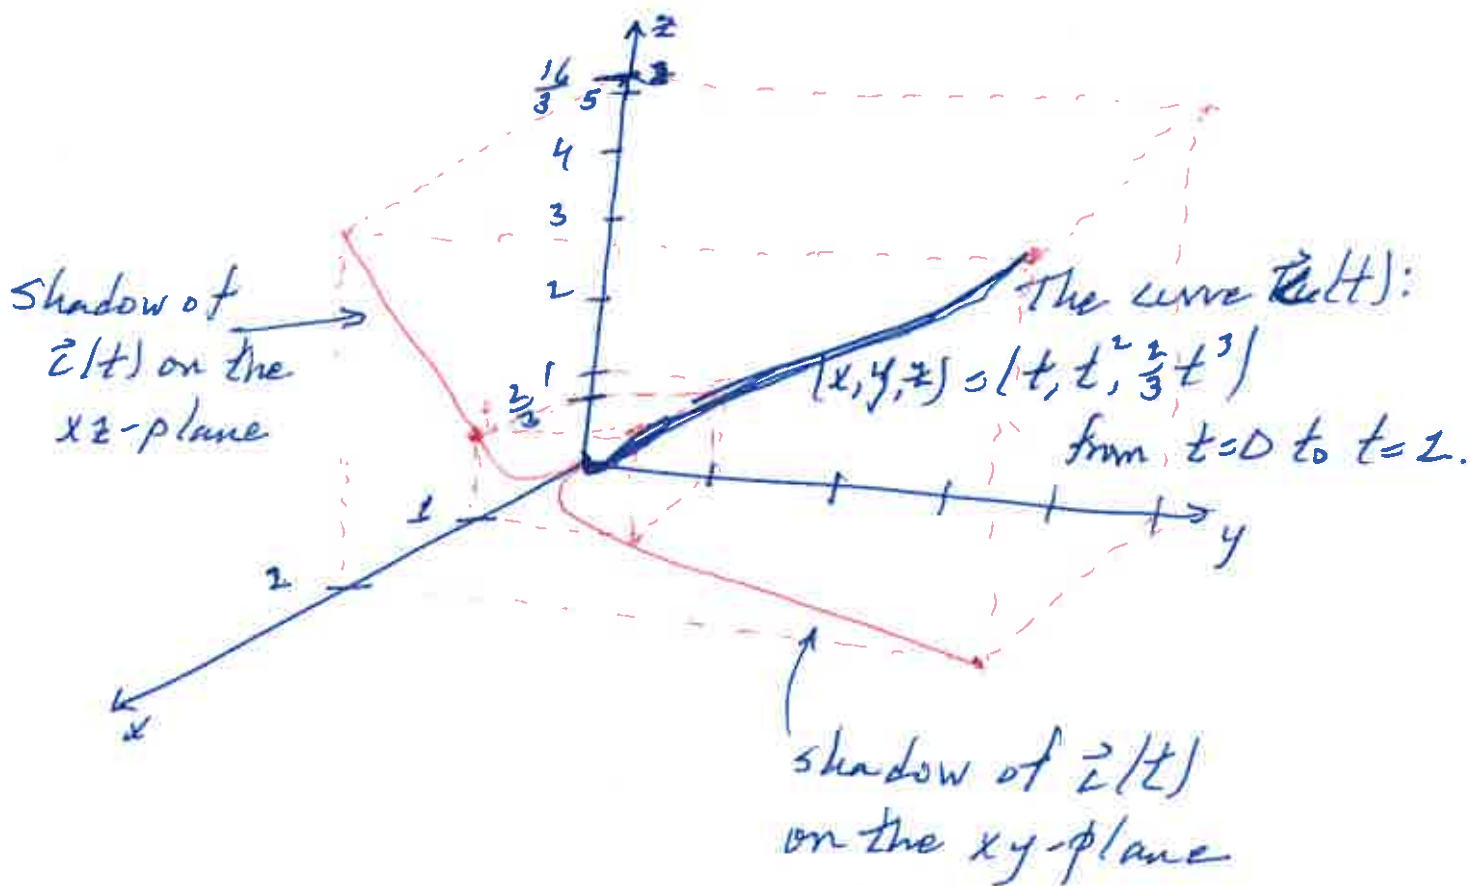 z
16/3
5
4
3
2
1
2/3
Shadow of
c⃗(t) on the
xz-plane
The curve c⃗(t):
(x, y, z) = (t, t², 2/3 t³)
from t=0 to t=2.
1
2
x
y
shadow of c⃗(t)
on the xy-plane